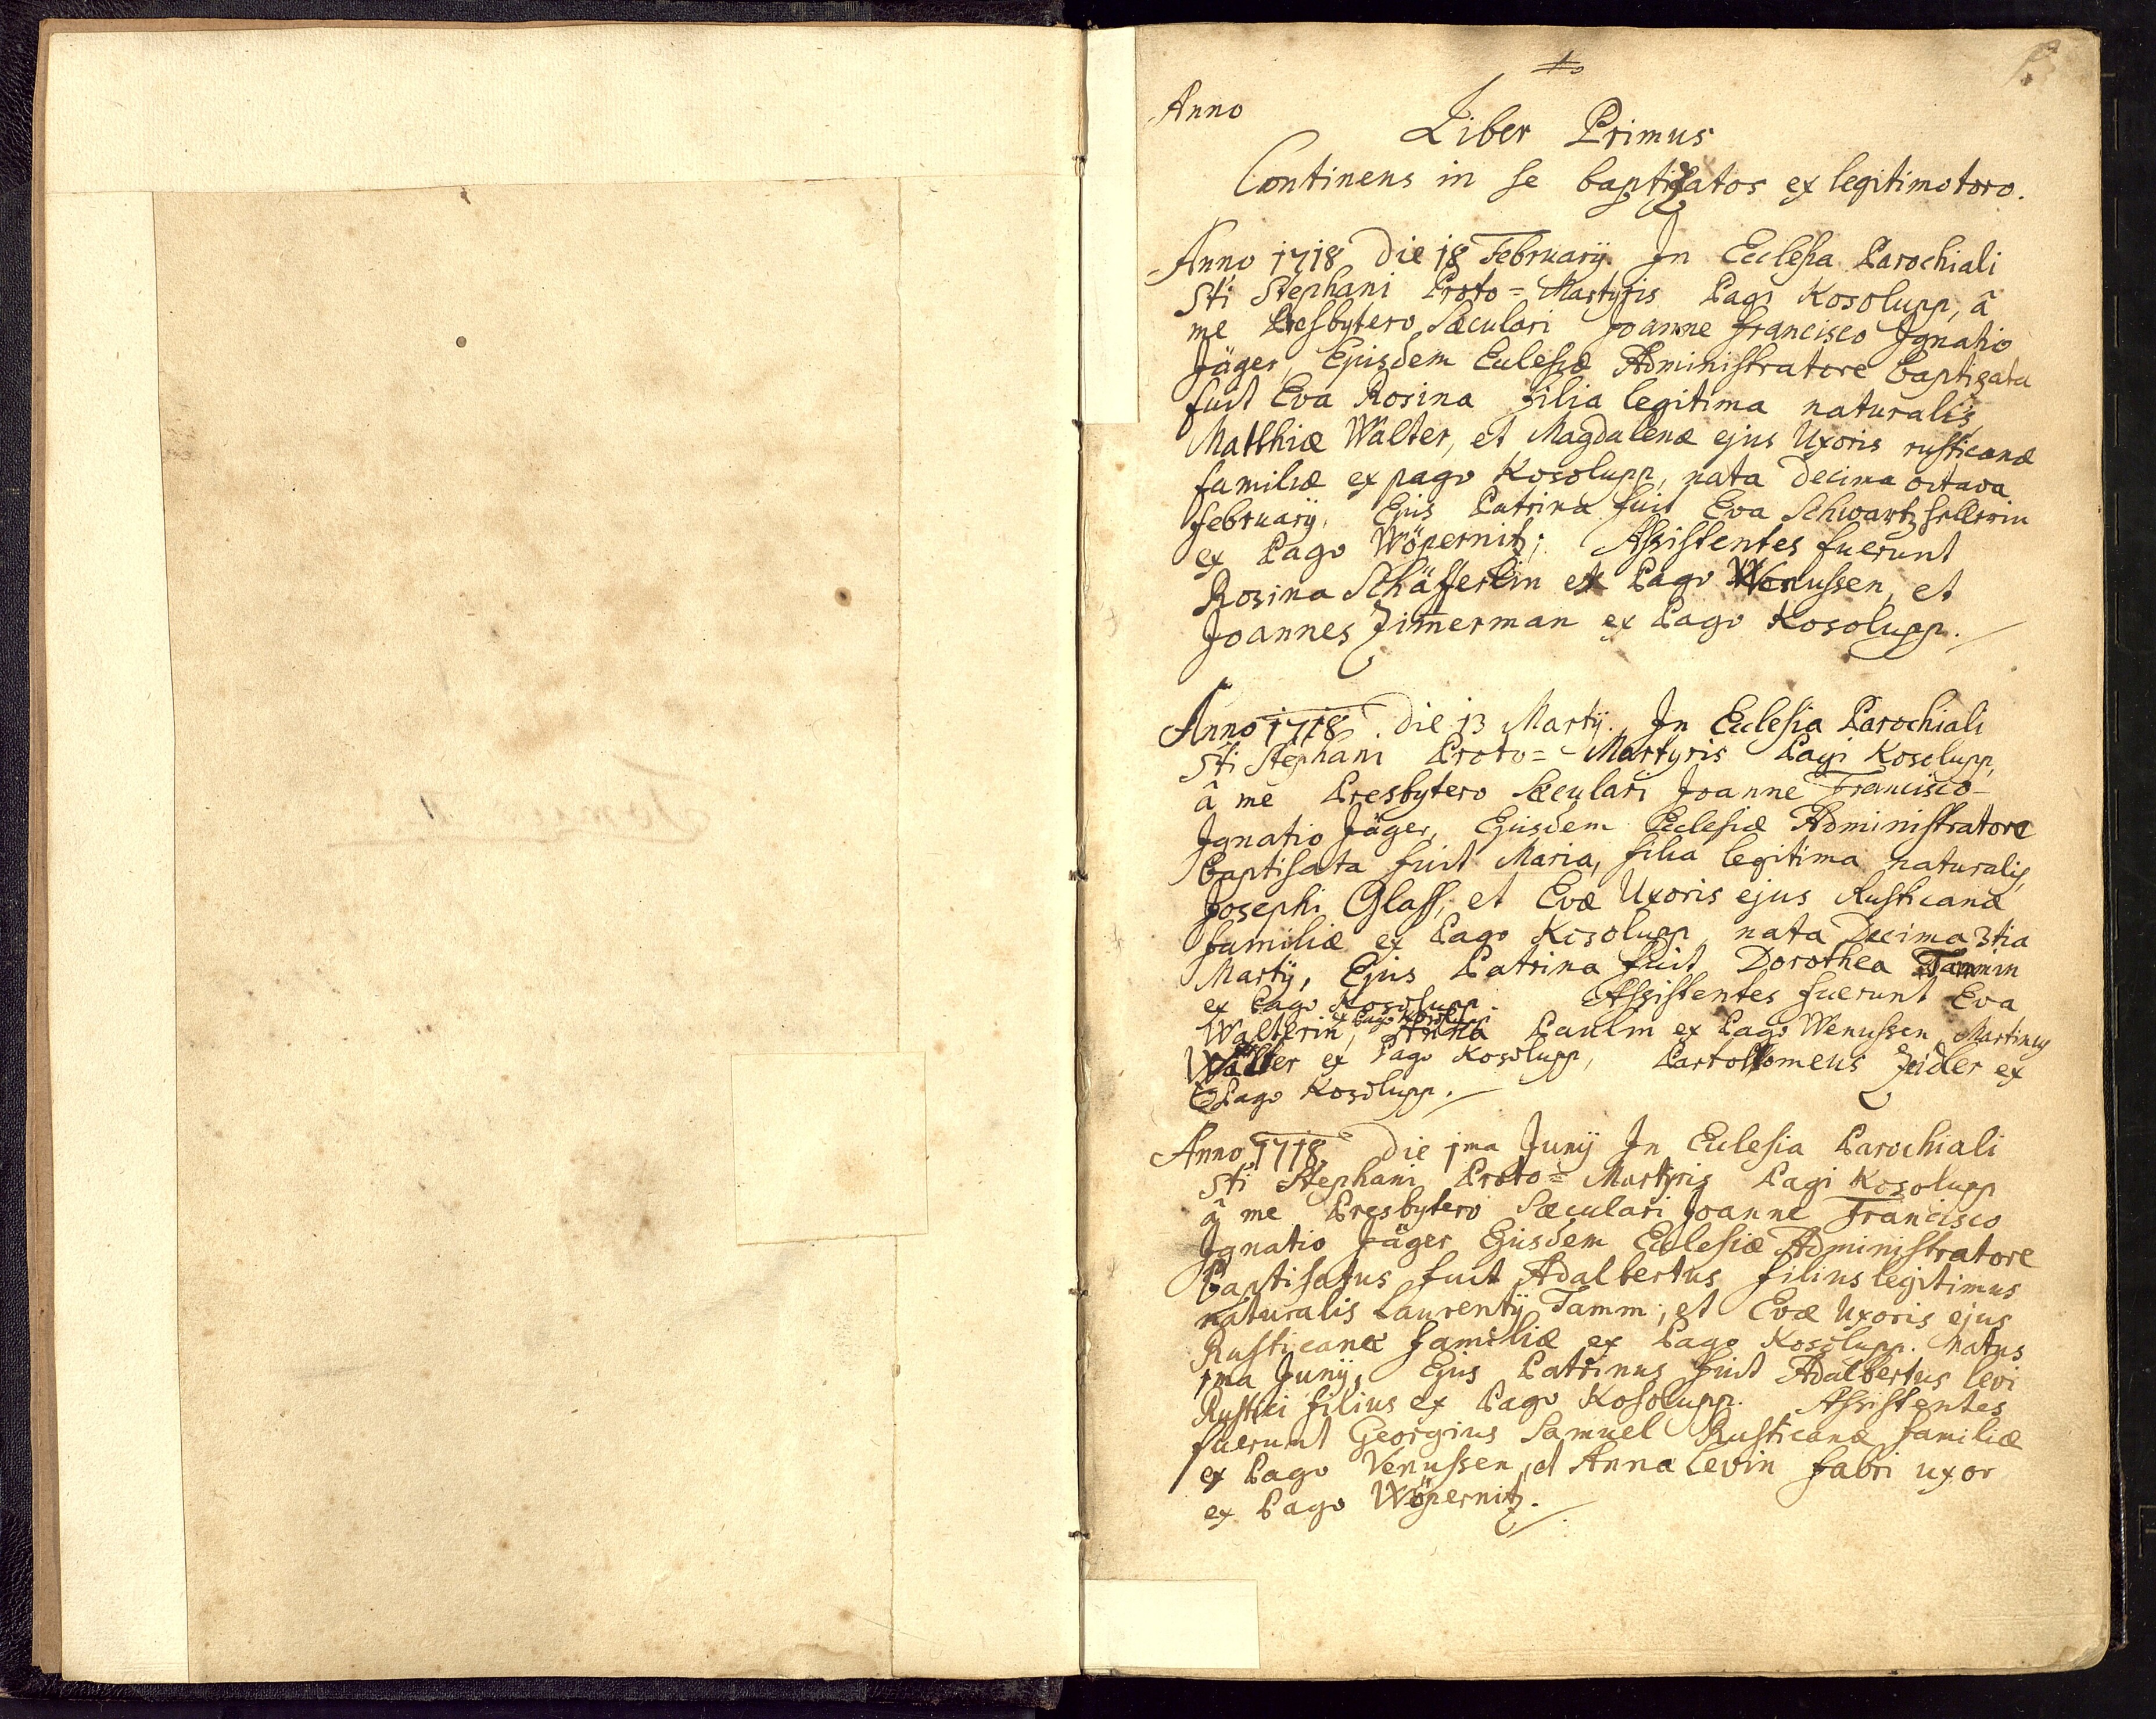 Anno
Liber Primus
Continens in se baptizatos ex legitimo toro.
Anno 1718 Die 18 Februarÿ. In Ecclesia Parochiali
Sti Stephani Proto=Martyris Pagi Kosolupp, â
me Presbytero Sæculari Joanne Francisco Ignatio
Jäger, Ejusdem Eclesiæ Administratore baptizata
fuit Eva Rosina filia legitima naturalis
Matthiæ Walter, et Magdalenæ ejus Uxoris rusticanæ
familiæ ex pago Kosolupp, nata Decima octava
februarÿ. Ejus Patrina fuit Eva
ex Pago Wöpernitz; Assistentes fuerunt
Rosina Schäfferlin ex Pago Wenussen, et
Joannes Zimmerman ex Pago Kosolupp.
Anno 1718 Die 13 Martÿ. In Eclesia Parochiali
Sti Stephani Proto=Martyris Pagi Kosolupp,
â me Presbytero Sæculari Joanne Francisco
Ignatio Jäger, Ejusdem Eclesiæ Administratore
baptisata fuit Maria, filia legitima naturalis,
Josephi Glass, et Evæ Uxoris ejus Rusticanæ
familiæ ex Pago Kosolupp nata Decima 3tia
Martÿ, Ejus Patrina fuit Dorothea Tammin
ex Pago Kosolupp. Assistentes fuerunt Eva
Walterin, ex Pago Kosolupp Anna Paulin ex Pago Wenussen, Martinus
Walter ex Pago Kosolupp, Partolomeus Zeidler ex
Pago Kosolupp.
Anno 1718 Die 1ma Junÿ In Eclesia Parochiali
Sti Stephani Proto=Martyris Pagi Kosolupp
â me Presbytero Sæculari Joanne Francisco
Ignatio Jäger Ejusdem Eclesiæ Administratore
Baptisatus fuit Adalbertus filius legitimus
naturalis Laurentÿ Tamm, et Evæ Uxoris ejus
Rusticanæ familiæ ex Pago Kosolupp. Natus
1ma Junÿ, Ejus Patrinus fuit Adalbertus levi
Rustici filius ex Pago Kosolupp. Assistentes
fuerunt Georgius Samuel Rusticanæ familiæ
ex Pago Venussen, et Anna Levin fabri uxor
ex Pago Wöpernitz.